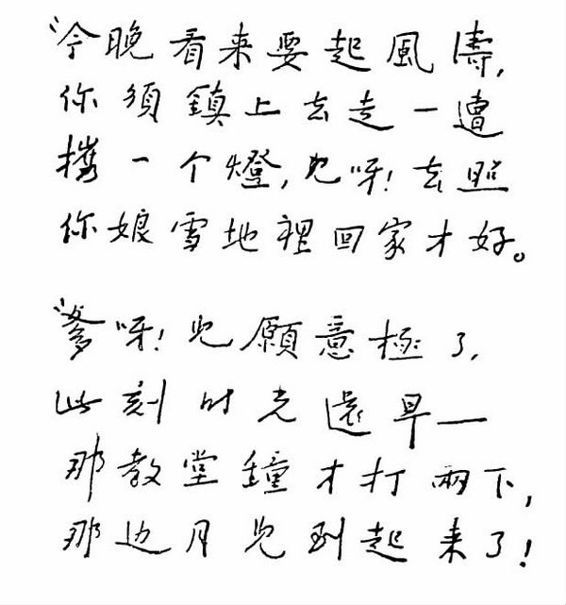 “今晚看来要起風濤,
你須鎮上去走一遭
携一个燈,兒呀!去照
你娘雪地裡回家才好。
“爹呀!兒願意極了,
此刻时光還早—
那教堂鐘才打兩下,
那边月兒到起来了!